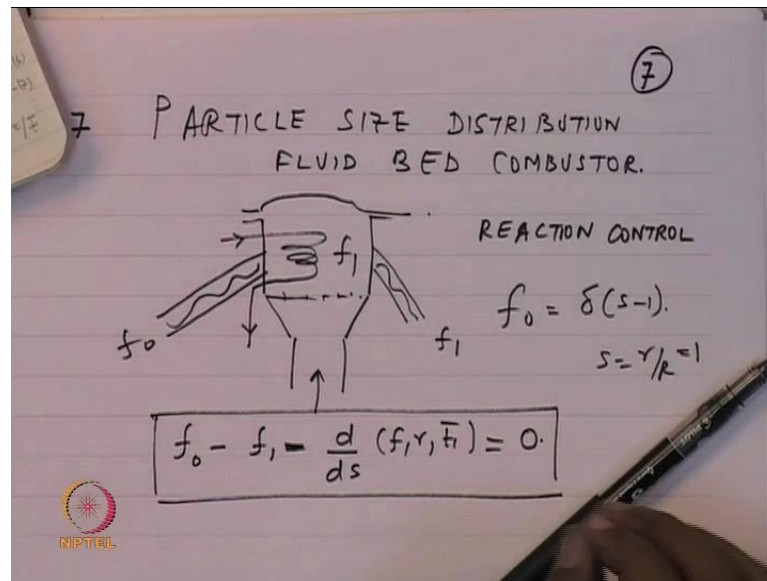 7
7 PARTICLE SIZE DISTRIBUTION
FLUID BED COMBUSTOR.
REACTION CONTROL
f₁
f₀ = δ(s-1).
f₀
f₁
s = r/R = 1
f₀ - f₁ - d/ds (f₁ r, t̄₁) = 0.
NPTEL